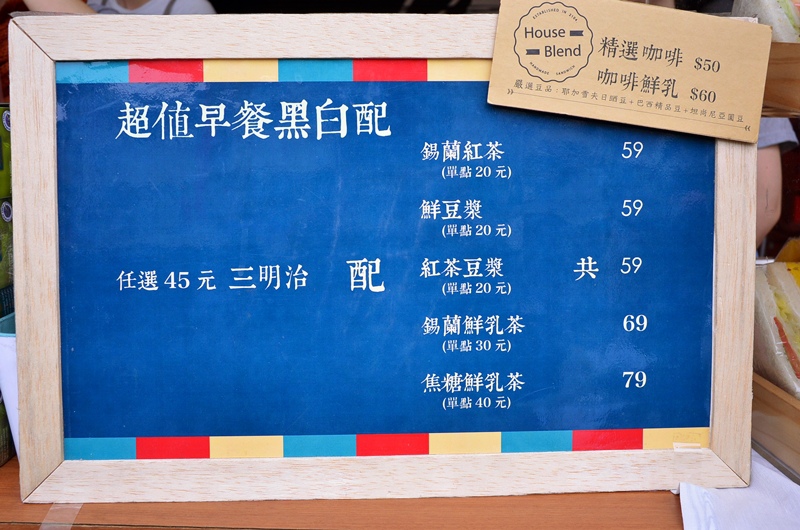 ESTABLISHED IN
House
Blend
HANDMADE SANDWICH
精選咖啡 $50
咖啡鮮乳 $60
嚴選豆品：耶加雪夫日曬豆+巴西精品豆+坦尚尼亞圓豆
超值早餐黑白配
錫蘭紅茶 59
(單點 20 元)
鮮豆漿 59
(單點 20 元)
任選 45 元 三明治 配 紅茶豆漿 共 59
(單點 20 元)
錫蘭鮮乳茶 69
(單點 30 元)
焦糖鮮乳茶 79
(單點 40 元)